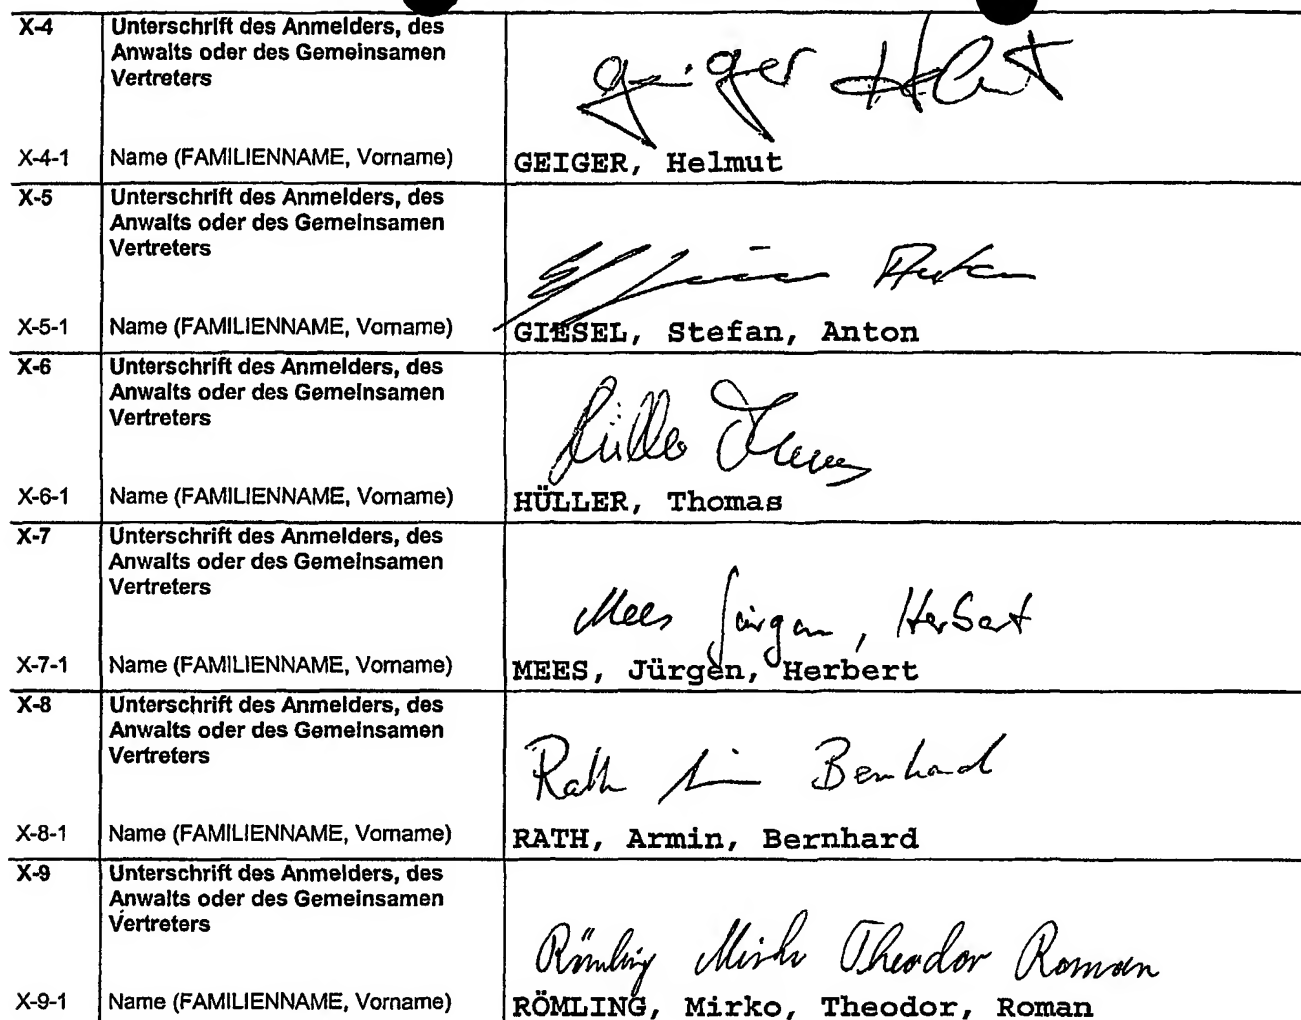 X-4 Unterschrift des Anmelders, des
Anwalts oder des Gemeinsamen
Vertreters
Geiger Helmut
X-4-1 Name (FAMILIENNAME, Vorname) GEIGER, Helmut
X-5 Unterschrift des Anmelders, des
Anwalts oder des Gemeinsamen
Vertreters
X-5-1 Name (FAMILIENNAME, Vorname) GIESEL, Stefan, Anton
X-6 Unterschrift des Anmelders, des
Anwalts oder des Gemeinsamen
Vertreters
Hüller Thomas
X-6-1 Name (FAMILIENNAME, Vorname) HÜLLER, Thomas
X-7 Unterschrift des Anmelders, des
Anwalts oder des Gemeinsamen
Vertreters
Mees Jürgen, Herbert
X-7-1 Name (FAMILIENNAME, Vorname) MEES, Jürgen, Herbert
X-8 Unterschrift des Anmelders, des
Anwalts oder des Gemeinsamen
Vertreters
Rath Armin Bernhard
X-8-1 Name (FAMILIENNAME, Vorname) RATH, Armin, Bernhard
X-9 Unterschrift des Anmelders, des
Anwalts oder des Gemeinsamen
Vertreters
Römling Mirko Theodor Roman
X-9-1 Name (FAMILIENNAME, Vorname) RÖMLING, Mirko, Theodor, Roman